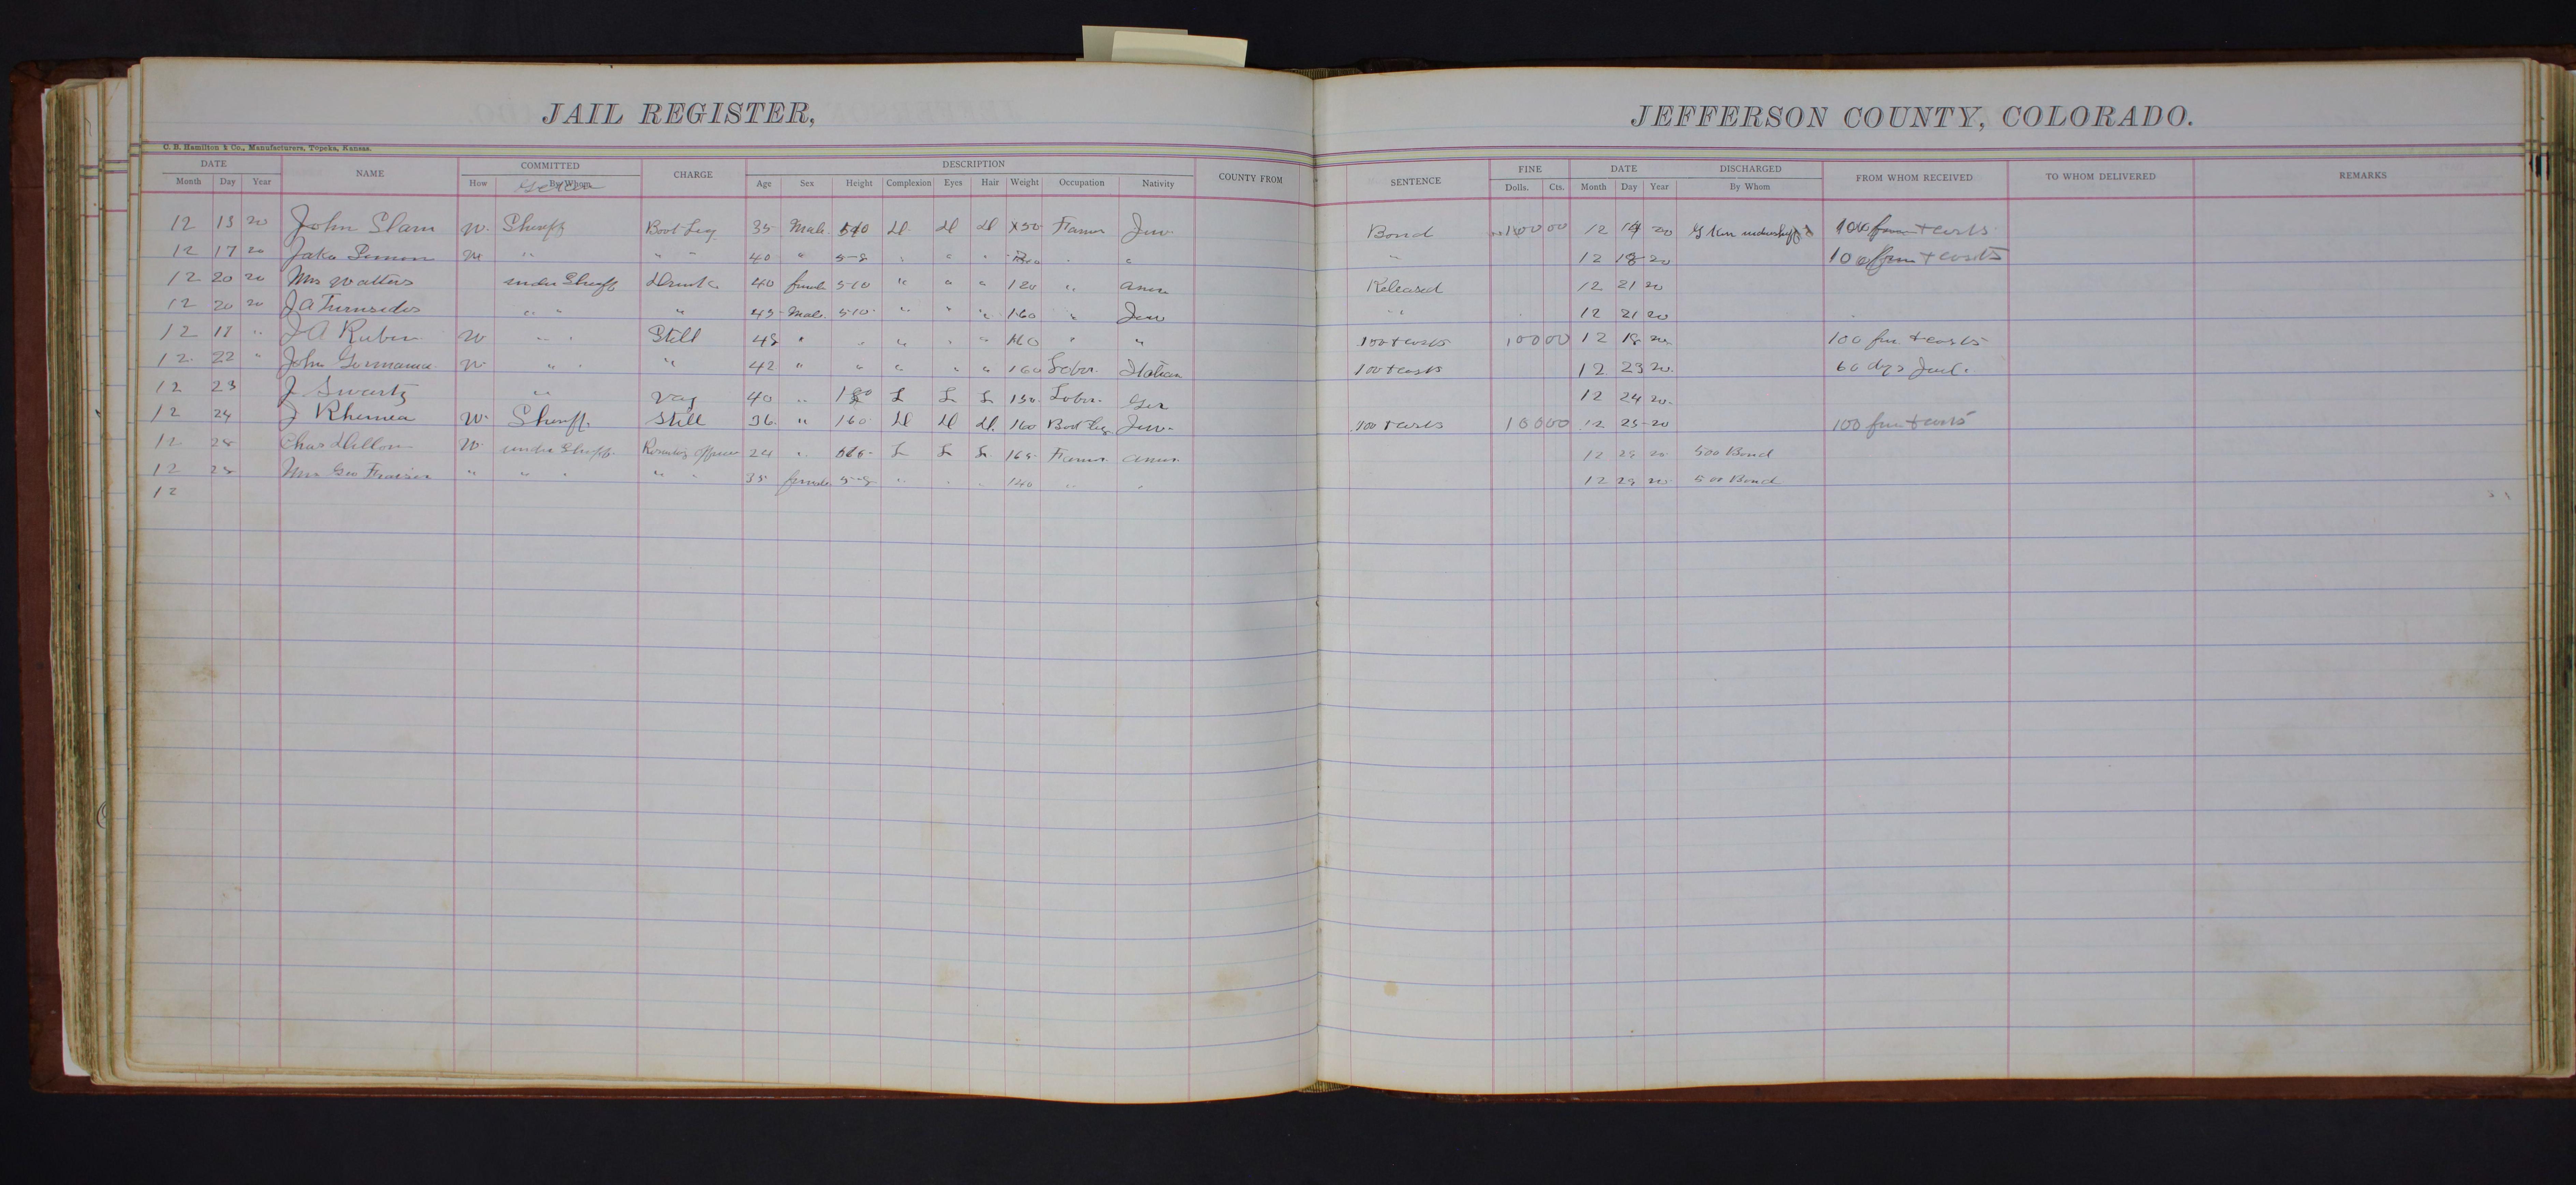 JAIL REGISTER, JEFFERSON COUNTY, COLORADO.
C. B. Hamilton & Co., Manufacturers, Topeka, Kansas.
DATE NAME COMMITTED CHARGE DESCRIPTION COUNTY FROM SENTENCE FINE DATE DISCHARGED FROM WHOM RECEIVED TO WHOM DELIVERED REMARKS
Month Day Year How By Whom Age Sex Height Complexion Eyes Hair Weight Occupation Nativity Dolls. Cts. Month Day Year By Whom
12 13 20 John Slam W. Sheriff Boot Leg 35 Male 510 d d d 150 Farmer Jew Bond 100 00 12 14 20 undersheriff 100 + costs
12 17 20 Jake " " " 40 " 5-8 " " " " " " 12 18 20 100 + costs
12 20 20 Mrs Watters under Sheriff Drunk 40 female 510 " " " 120 " Amer Released 12 21 20
12 20 20 J A Turnsides " " " 45 Male 510 " " " 160 " Jew " 12 21 20
12 18 " J A Rubin W " " Still 48 " " " " " 160 " " 100 + costs 100 00 12 18 20 100 fine + costs
12 22 " John Germania W. " " " 42 " " " " " 160 Labor. Italian 100 + costs 12 23 20. 60 dys Jail.
12 23 J Swartz " Vag 40 " L L L 150. Labor. Ger 12 24 20.
12 24 J Rhemea W. Sheriff. Still 36. " 160 d d d. 160 Boot Leg Jew. 100 + costs 100 00 12 25-20 100 fine + costs
12 28 Chas Dillon W. under Sheriff. Resisting Officer 24 " L L L 165. Farmer. Amer. 12 29 20 500 Bond
12 28 Mrs Geo Frasier " " " " " 35 female 5-8 " " " 140 " " 12 29 20. 500 Bond
12